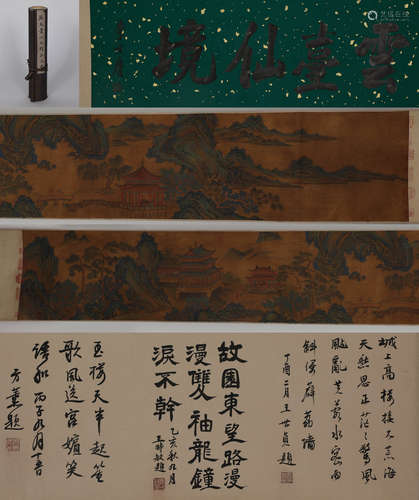 艺狐在线
雲臺仙境
城上高樓接大荒海
天愁思正茫茫驚風
亂颭芙蓉水密雨
斜侵薜荔墻
丁酉二月王世貞題
故園東望路漫
漫雙袖龍鐘
淚不幹
乙亥秋九月
王時敏題
玉樓天半起笙
歌風送宮嬪笑
語和 丙子九月
方薰題